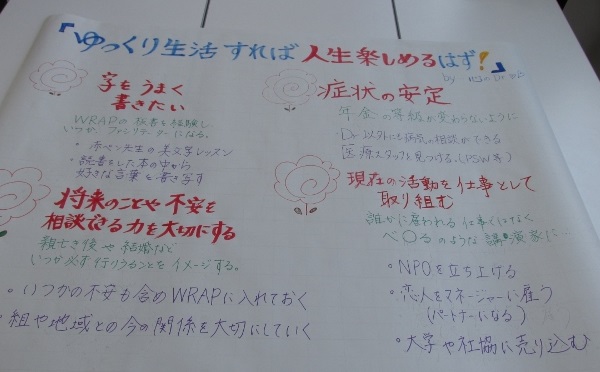 『ゆっくり生活すれば 人生楽しめるはず!』
by
字をうまく
書きたい
WRAPの板書を経験し
いつか、ファシリテーターになる。
・赤ペン先生の美文字レッスン
・読書をした本の中から
好きな言葉を書き写す
将来のことや不安を
相談できる力を大切にする
親亡き後や結婚など
いつか必ず行うことをイメージする。
・いつかの不安も含めWRAPに入れておく
・組や地域との今の関係を大切にしていく
症状の安定
年金の等級が変わらないように
Dr以外にも病気の相談ができる
医療スタッフを見つける。(PSW等)
現在の活動を仕事として
取り組む
誰かに雇われる仕事ではなく
べ〇るのような講演家に…
・NPOを立ち上げる
・恋人をマネージャーに雇う
(パートナーになる)
・大学や社協に売り込む